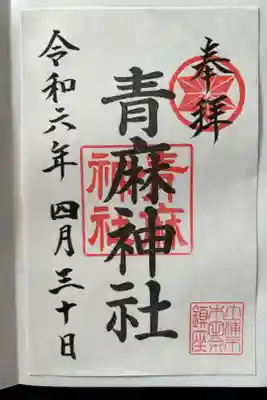 奉拝
青麻神社
令和六年 四月三十日
青麻神社